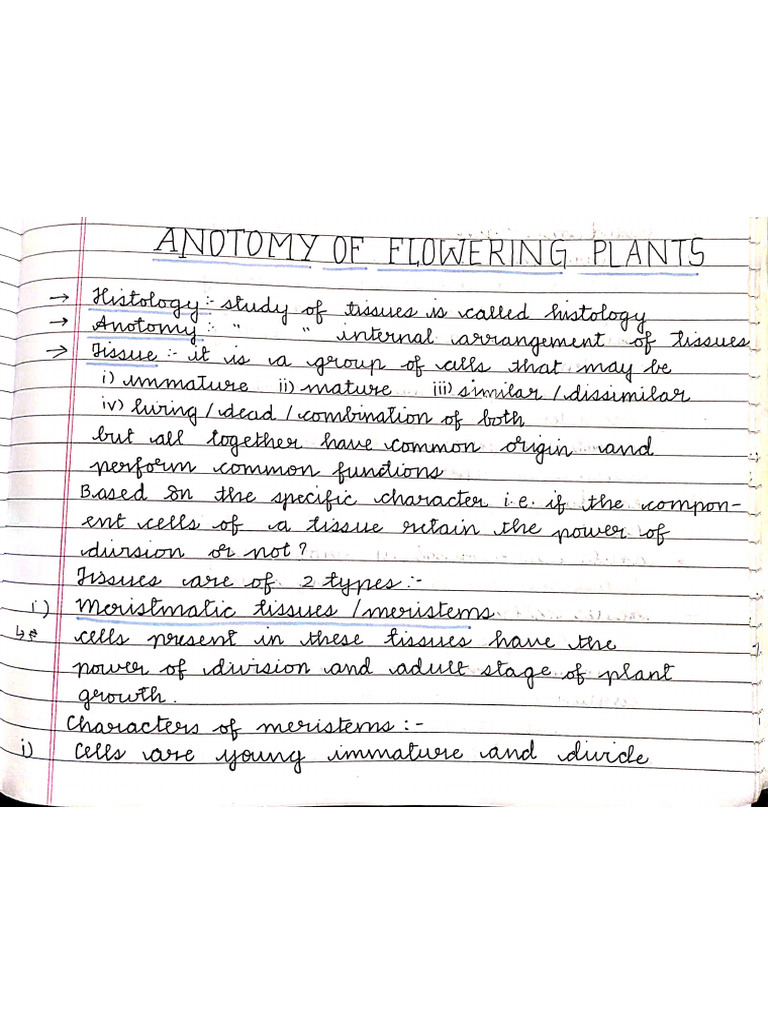 ANOTOMY OF FLOWERING PLANTS
→ Histology :- study of tissues is called histology
→ Anotomy :- " " internal arrangement of tissues
→ Tissue :- it is a group of cells that may be
i) immature ii) mature iii) similar / dissimilar
iv) living / dead / combination of both
but all together have common origin and
perform common functions
Based on the specific character i.e. if the compon-
ent cells of a tissue retain the power of
division or not?
Tissues are of 2 types :-
i) Meristmatic tissues / meristems
↳ cells present in these tissues have the
power of division and adult stage of plant
growth.
Characters of meristems :-
i) Cells are young immature and divide